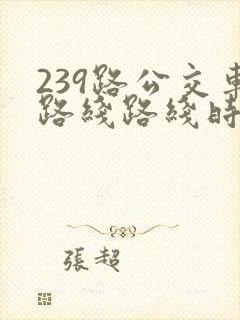 239路公交車
路綫路綫時
張超